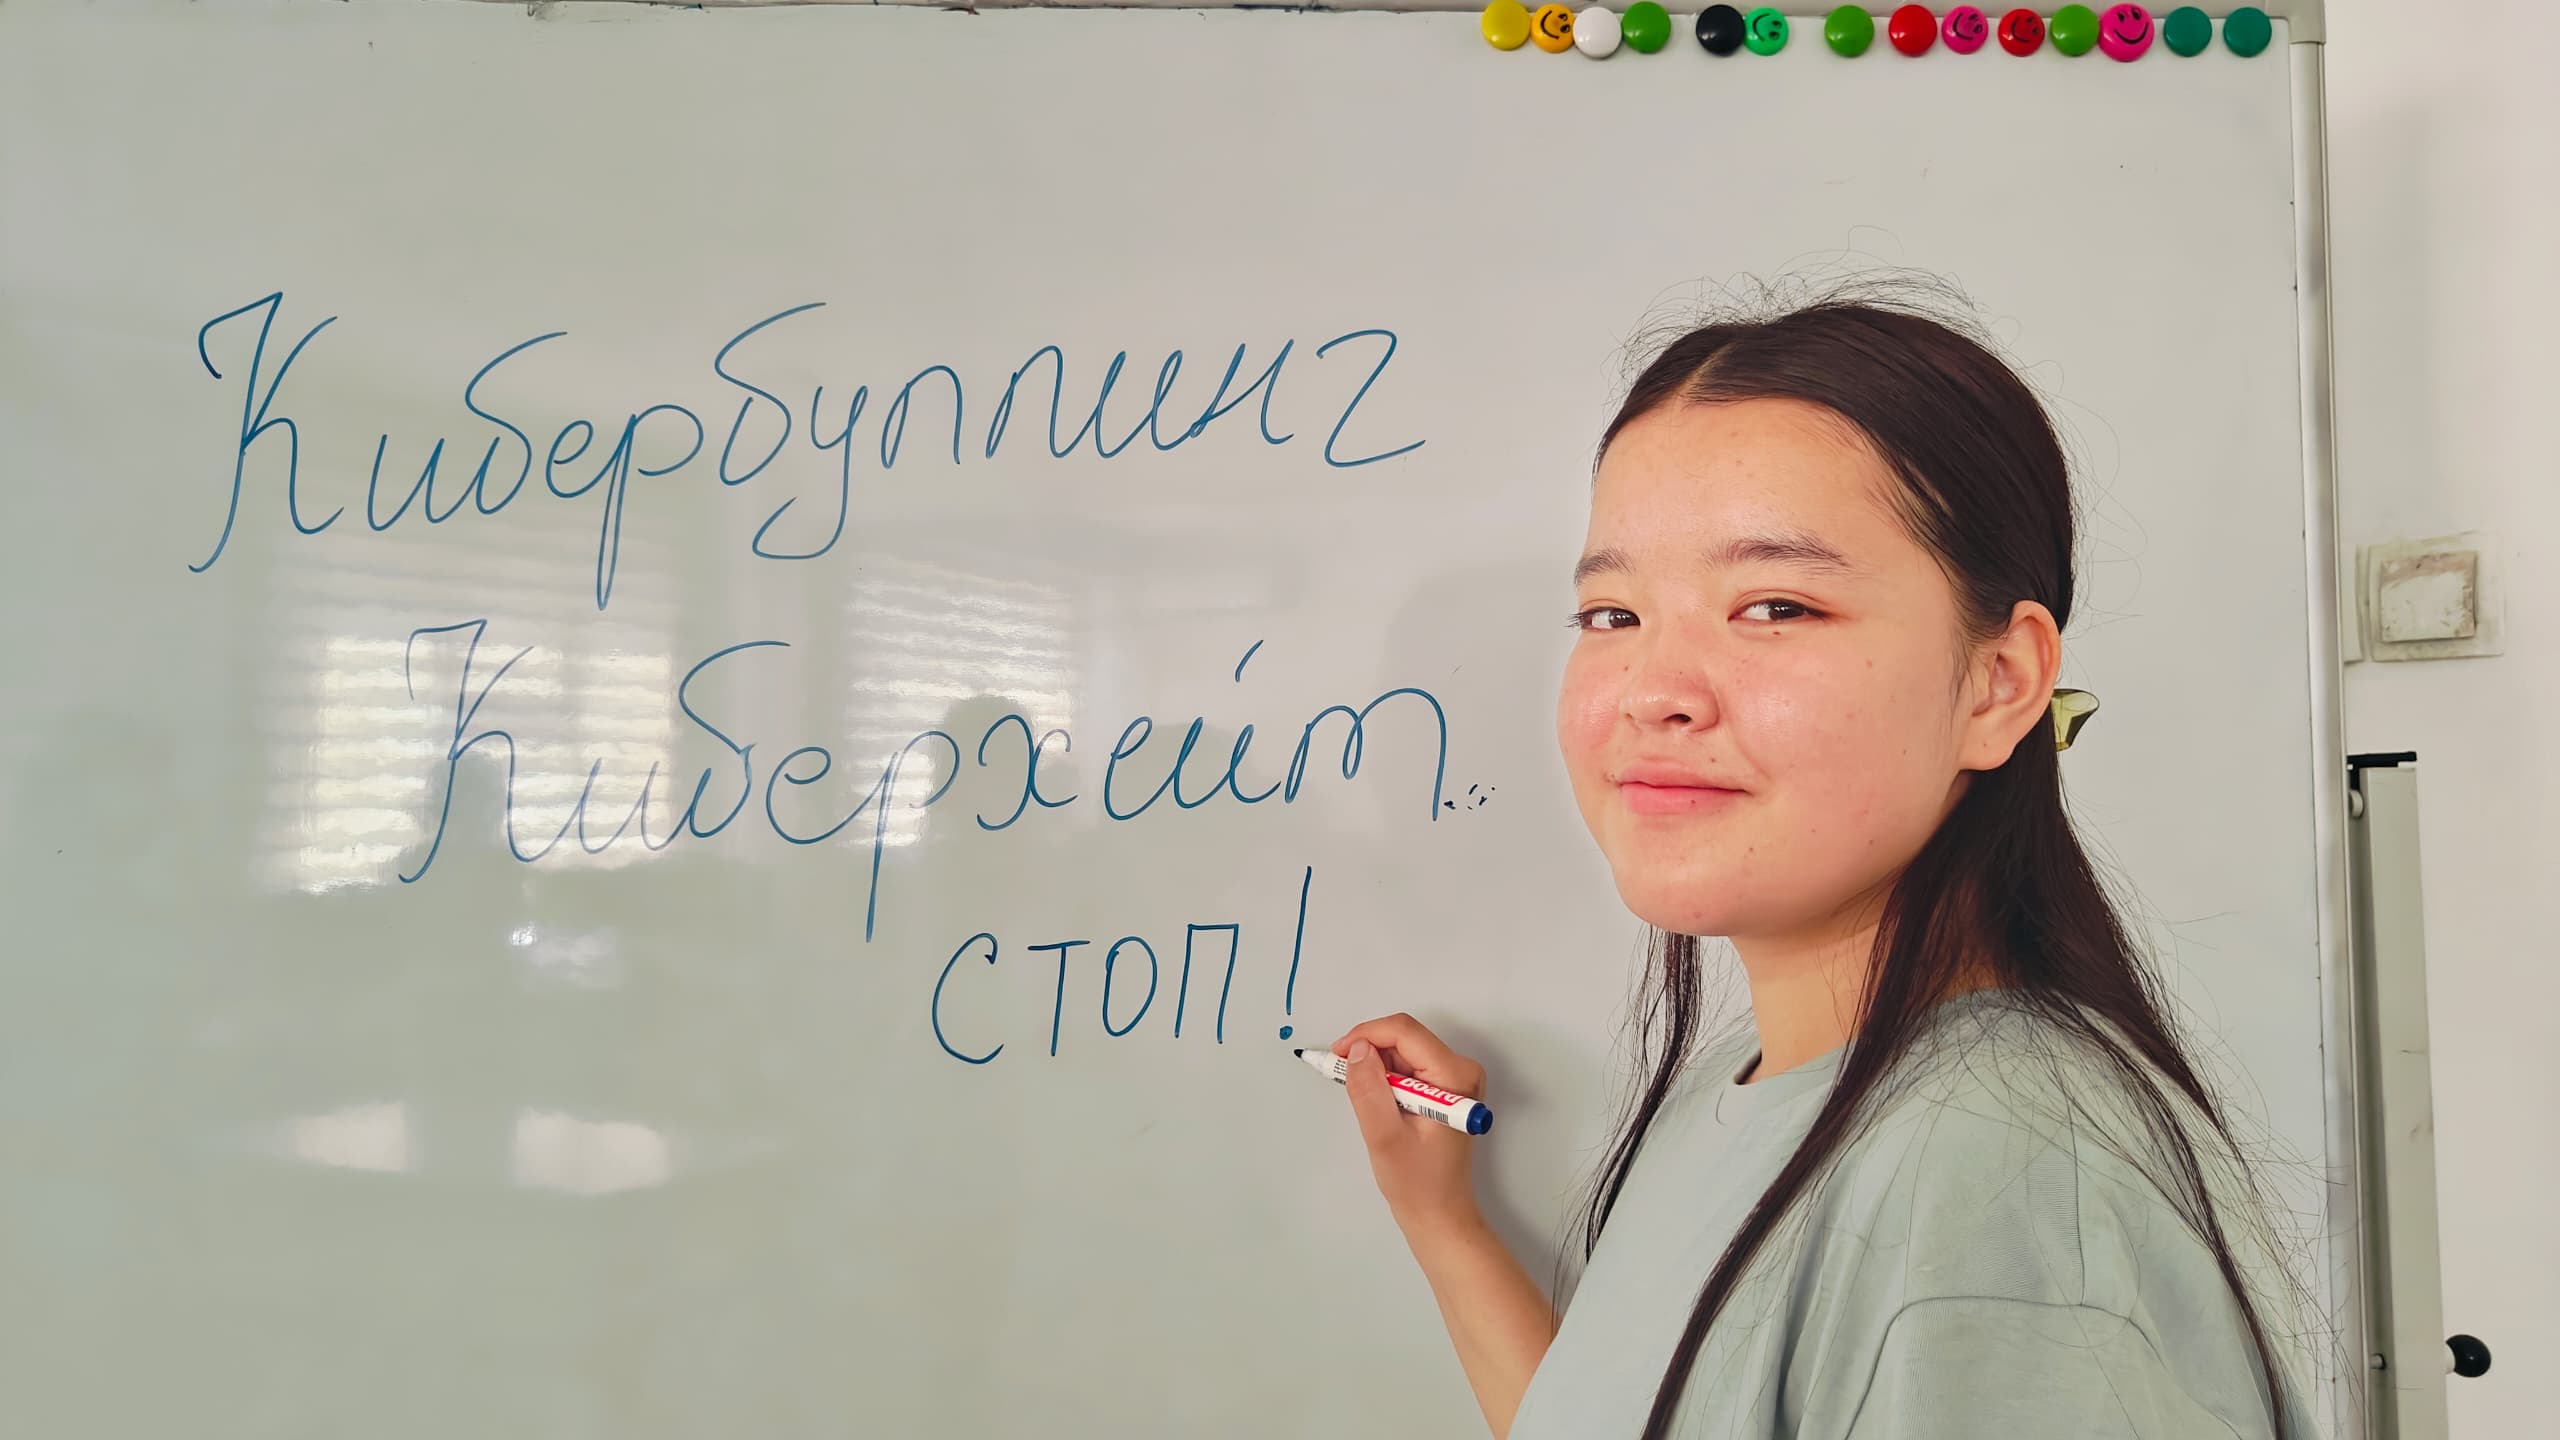 Кибербуллинг
Киберхейт
СТОП!
board